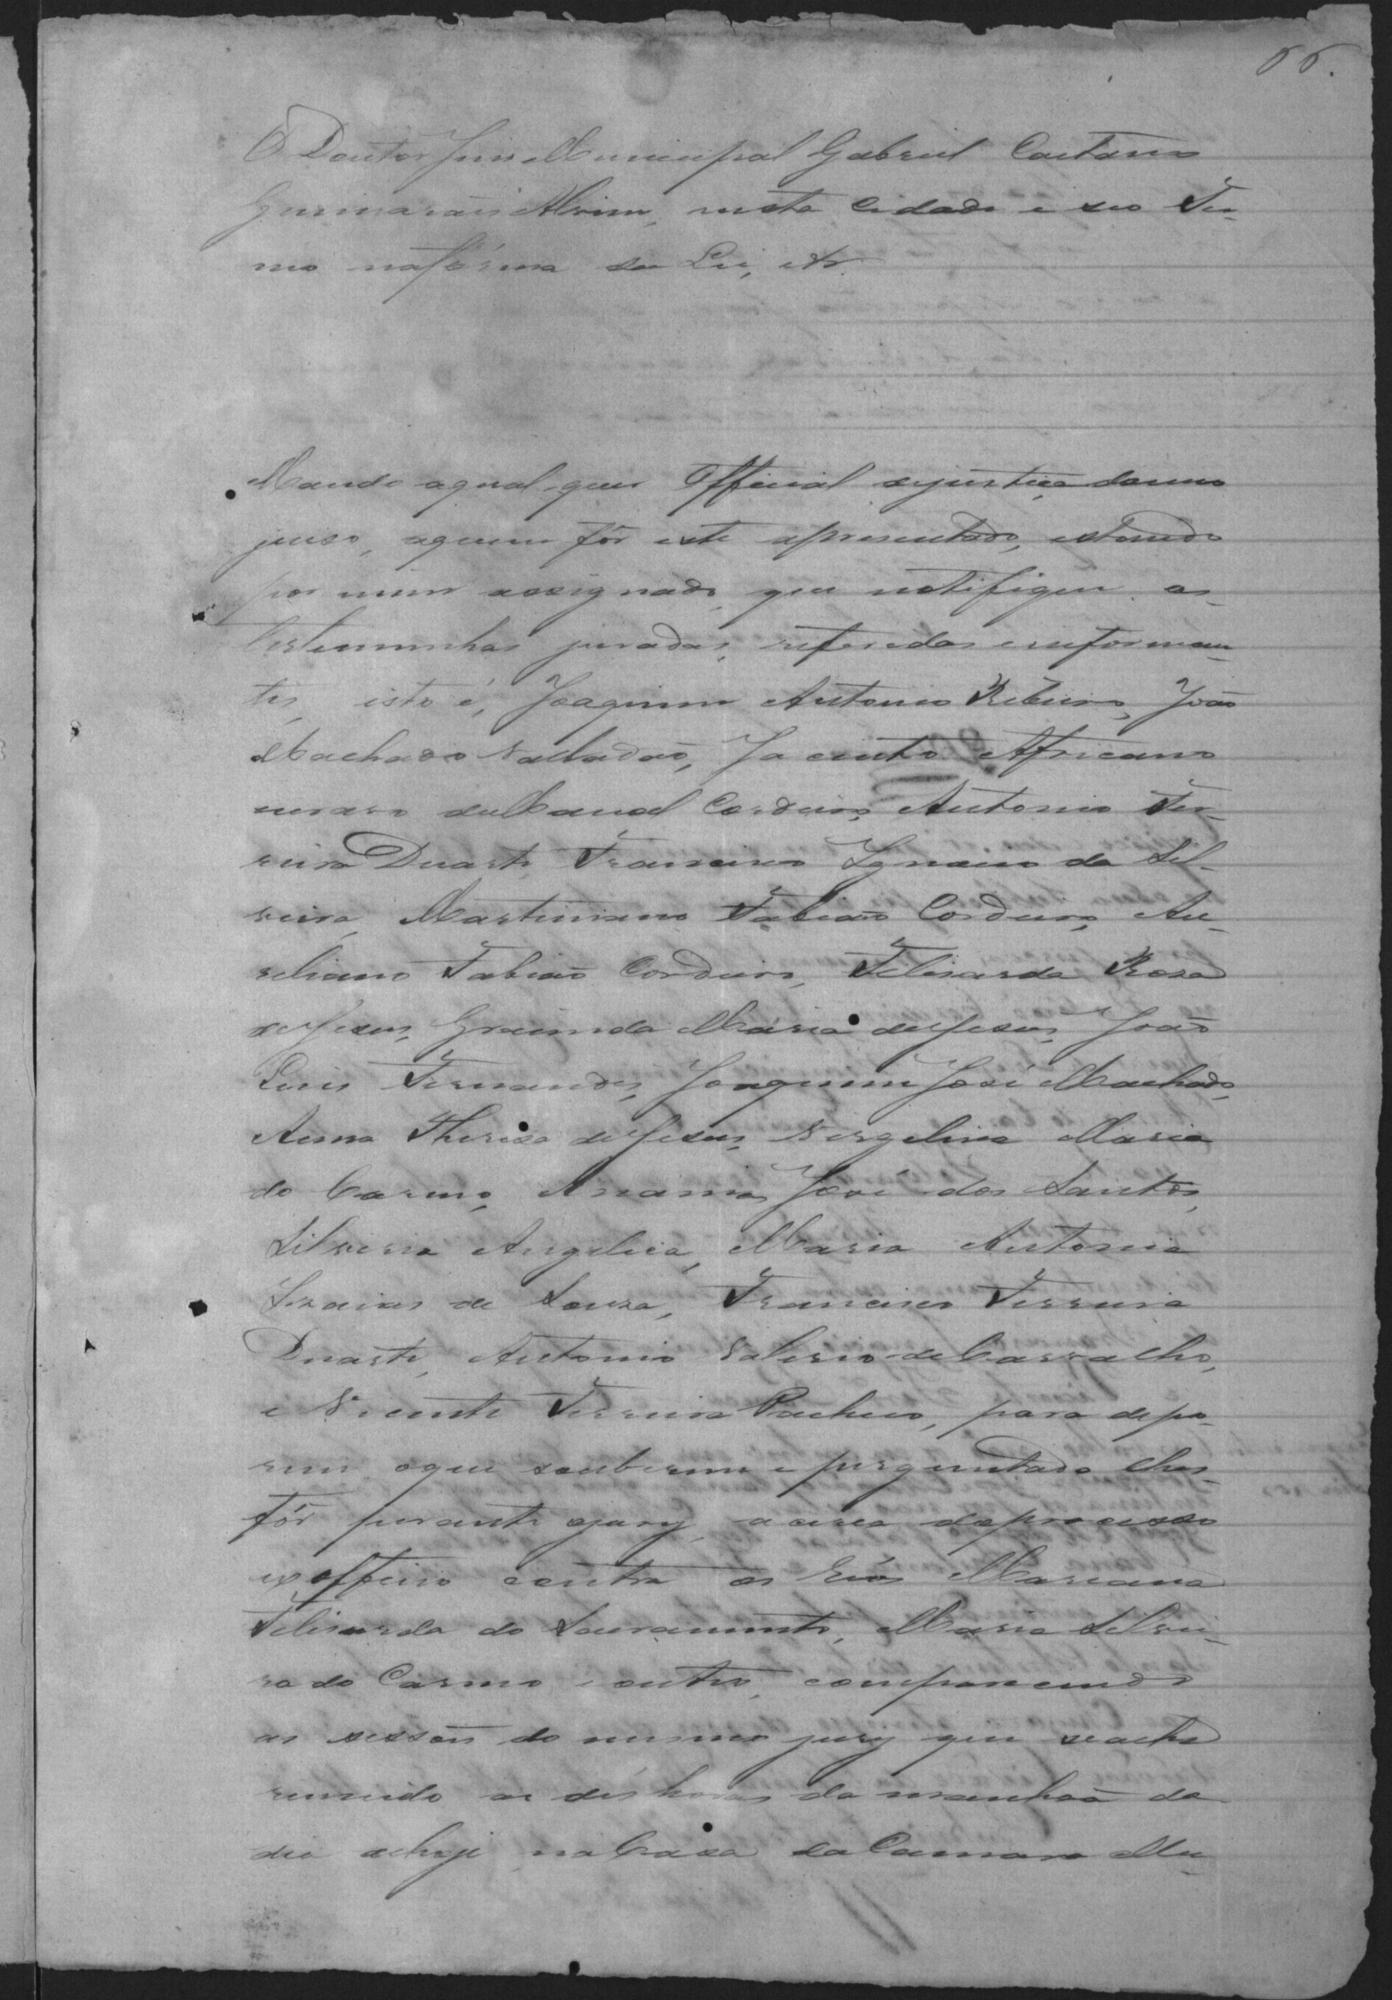 66.
O Doutor Juis Municipal Gabriel Caetano
Guimarães Alvim, nesta Cidade e seo Ter-
mo na fórma da Lei, etc.
Mando a qual quer Official de justiça do meo
juiso, a quem fôr este apresentado, estando
por mim assignado, que notifique as
testemunhas juradas, referedas e informan-
tes, isto é, Joaquim Antonio Ribeiro, João
Machado Valladão, Jacintho Africano
escravo de Manoel Cordeiro, Antonio Fer-
reira Duarte, Francisco Ignacio da Sil-
veira, Martiniano Fabião Cordeiro, Au-
reliano Fabião Cordeiro, Felisarda Rosa
de Jesus, Gracinda Maria de Jesus, João
Luis Fernandes, Joaquim José Machado,
Anna Theresa de Jesus, Virgelina Maria
do Carmo, Anania José dos Santos,
Silveria Angelica, Maria Antonia
Isaias de Souza, Francisco Ferreira
Duarte, Antonio Valerio de Carvalho,
e Vicente Ferreira Pacheco, para depo-
rem o que souberem e perguntado lhes
fôr perante o jury, a cerca do processo
ex officio contra os Réos Marianna
Felisarda do Sacramento, Maria Silvei-
ra do Carmo e outro, comparecendo
as sessões do mesmo jury que se acha
reunido as dés horas da manhaã do
dia de hoje na Casa da Camara Mu-